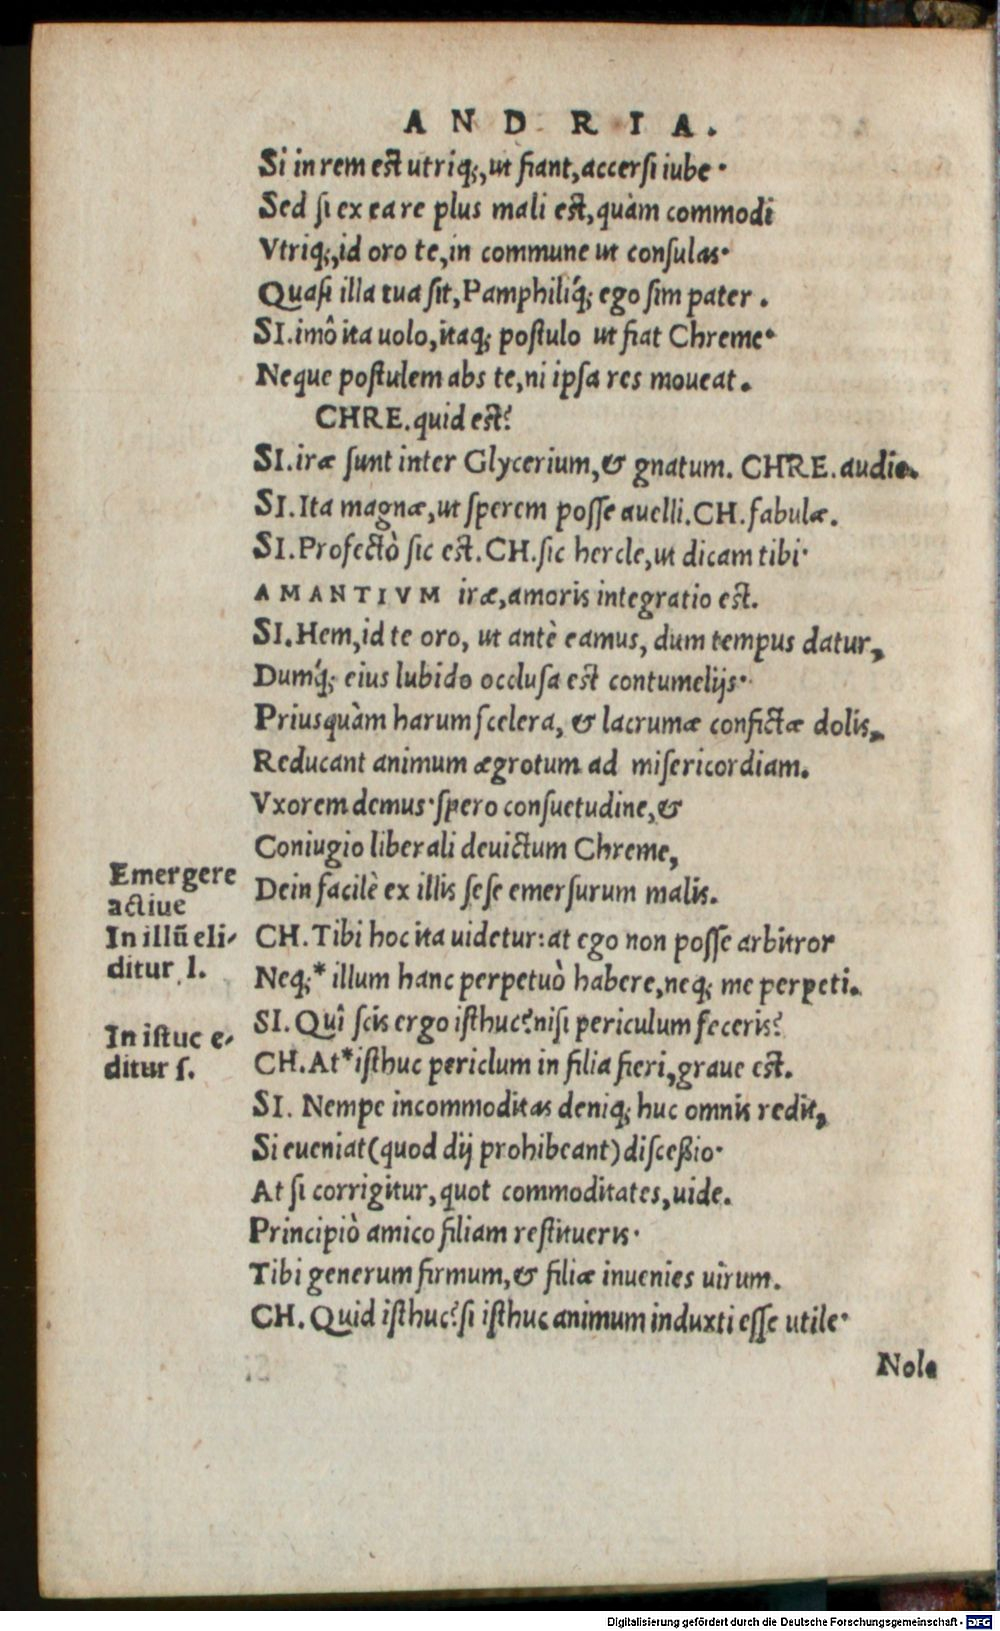 ANDRIA.
Si in rem est utriq;, ut fiant, accersi iube·
Sed si ex ea re plus mali est, quàm commodi
Vtriq;, id oro te, in commune ut consulas·
Quasi illa tua sit, Pamphiliq́; ego sim pater.
SI. imô ita uolo, itaq; postulo ut fiat Chreme·
Neque postulem abs te, ni ipsa res moueat.
CHRE. quid est?
SI. iræ sunt inter Glycerium, & gnatum. CHRE. audio.
SI. Ita magnæ, ut sperem posse auelli. CH. fabulæ.
SI. Profectò sic est. CH. sic hercle, ut dicam tibi·
AMANTIVM iræ, amoris integratio est.
SI. Hem, id te oro, ut antè eamus, dum tempus datur,
Dumq́; eius lubido occlusa est contumelijs·
Priusquàm harum scelera, & lacrumæ confictæ dolis,
Reducant animum ægrotum ad misericordiam.
Vxorem demus· spero consuetudine, &
Coniugio liberali deuictum Chreme,
Emergere
actiue
Dein facilè ex illis sese emersurum malis.
In illũ eli-
ditur l.
CH. Tibi hoc ita uidetur: at ego non posse arbitror
Neq;* illum hanc perpetuò habere, neq; me perpeti.
SI. Quî scis ergo isthuc? nisi periculum feceris?
In istuc e-
ditur s.
CH. At* isthuc periclum in filia fieri, graue est.
SI. Nempe incommoditas deniq; huc omnis redit,
Si eueniat (quod dij prohibeant) discessio·
At si corrigitur, quot commoditates, uide.
Principiò amico filiam restitueris·
Tibi generum firmum, & filiæ inuenies uirum.
CH. Quid isthuc? si isthuc animum induxti esse utile·
Nolo
Digitalisierung gefördert durch die Deutsche Forschungsgemeinschaft - DFG